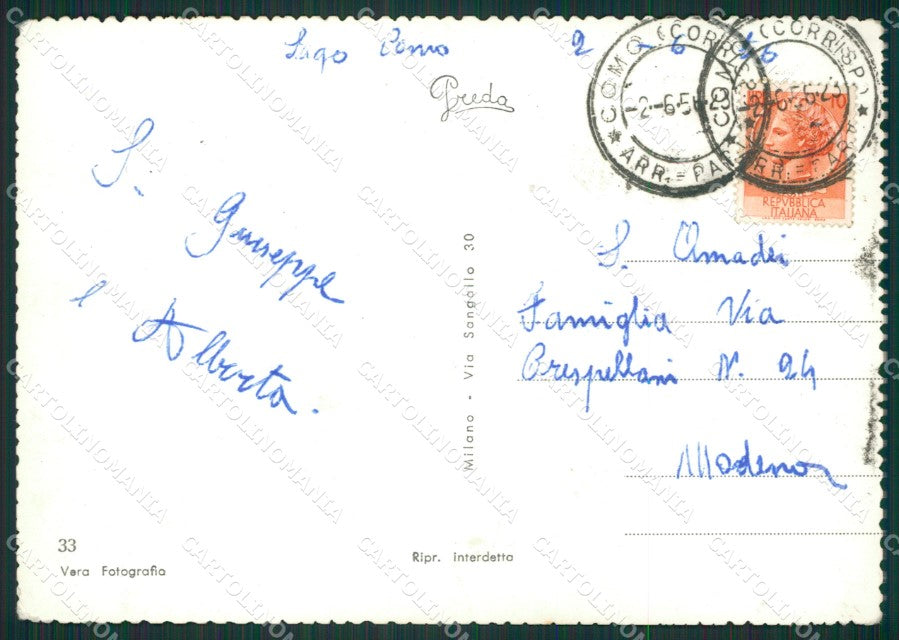 Lago Como 2 - 6 56
Greda
COMO (CORRISP.)
-2-6-56-23
★ ARR. = PAR. ★
COMO (CORRISP.)
-2-6-56-23
★ ARR. = PAR. ★
10
REPVBBLICA
ITALIANA
S.
Giuseppe
e
Alberta.
Milano - Via Sangallo 30
S. Amadei
Famiglia Via
Crespellani N. 24
Modena
33
Vera Fotografia
Ripr. interdetta
CARTOLINOMANIA